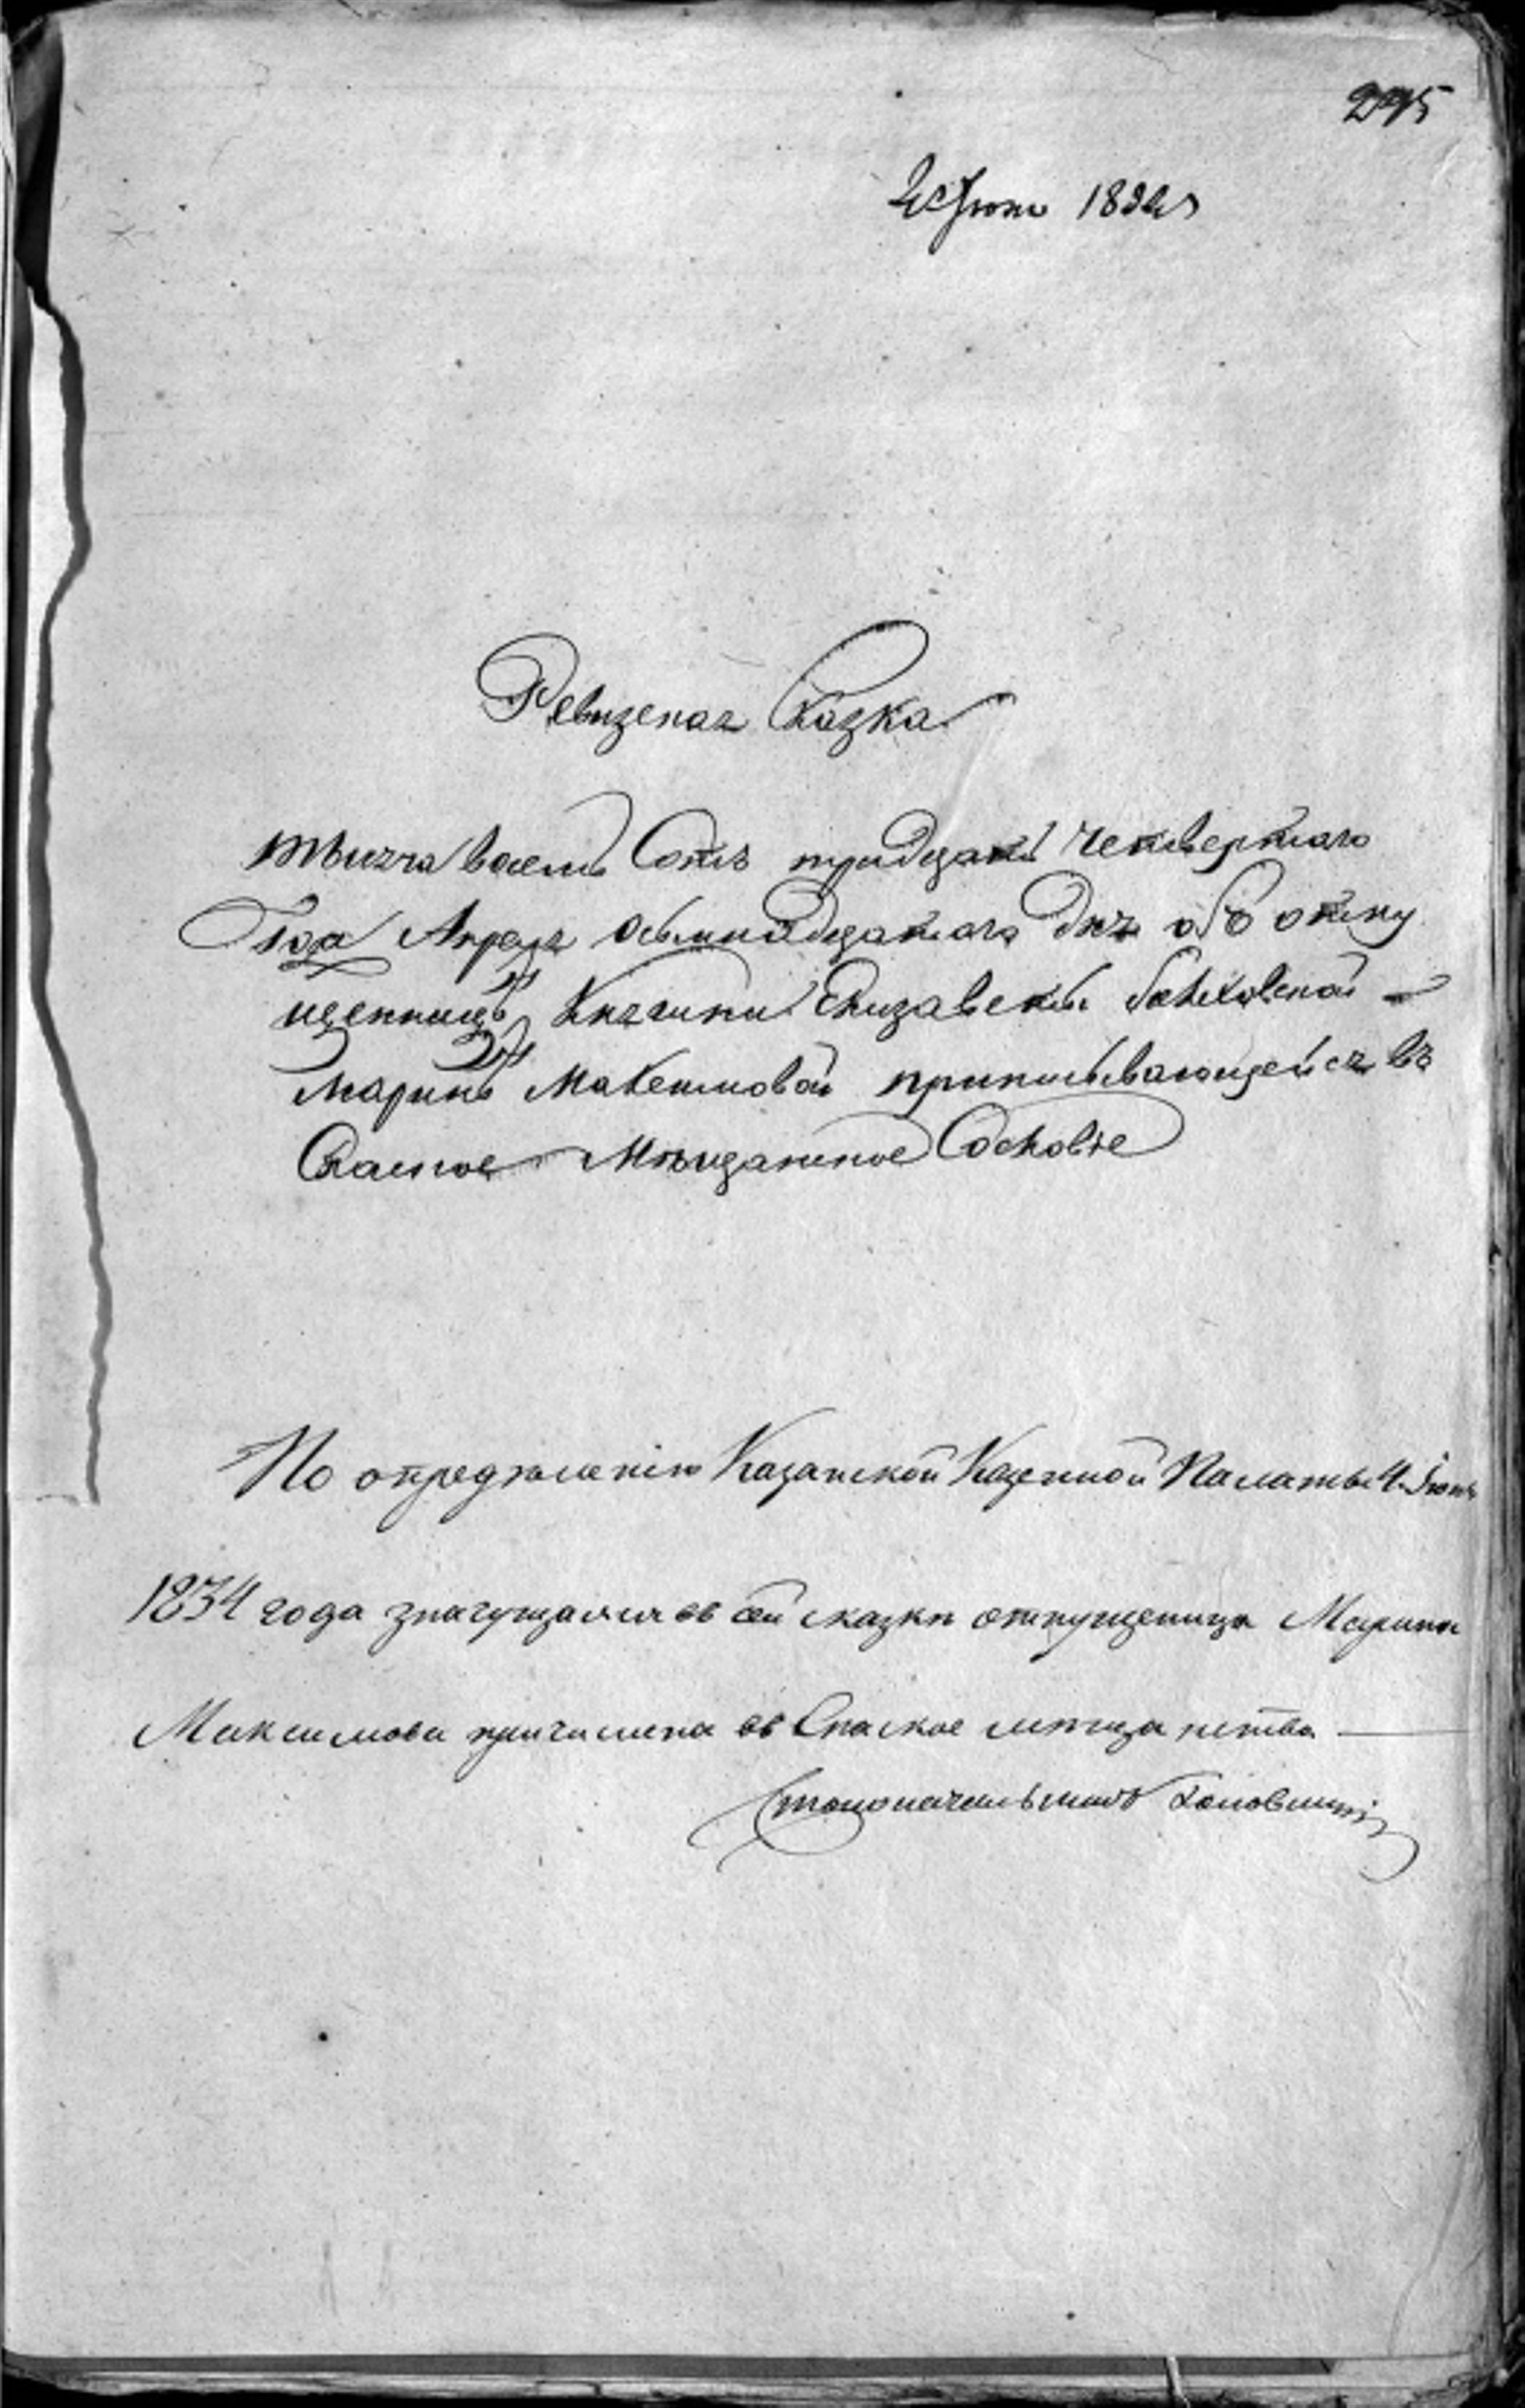 Ревизская Сказка
тысяча восемь Сотъ тридцать четвертаго
Года Апреля осьмнадцатаго дня объ отпу
щенницѣ Княгини Елизаветы
Маринѣ Максимовой приписывающейся въ
Спаское Мѣщанское Сословіе
По опредѣленію Казанской Казенной Палаты 4 Іюня
1834 года значущаяся въ сей сказкѣ отпущеница Марина
Максимова причислена въ Спаское мѣщанство
Столоначальникъ